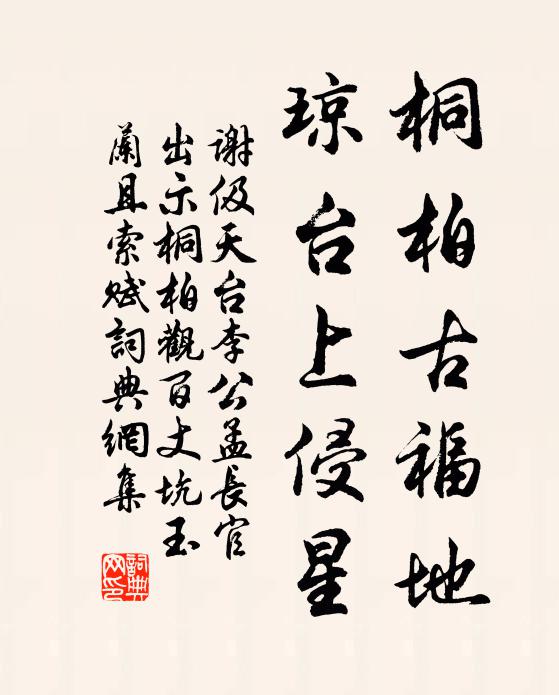 桐柏古福地
琼台上侵星
谢伋天台李公孟長官
出示桐柏觀百丈坑玉
蘭且索赋詞典網集
詞典网印